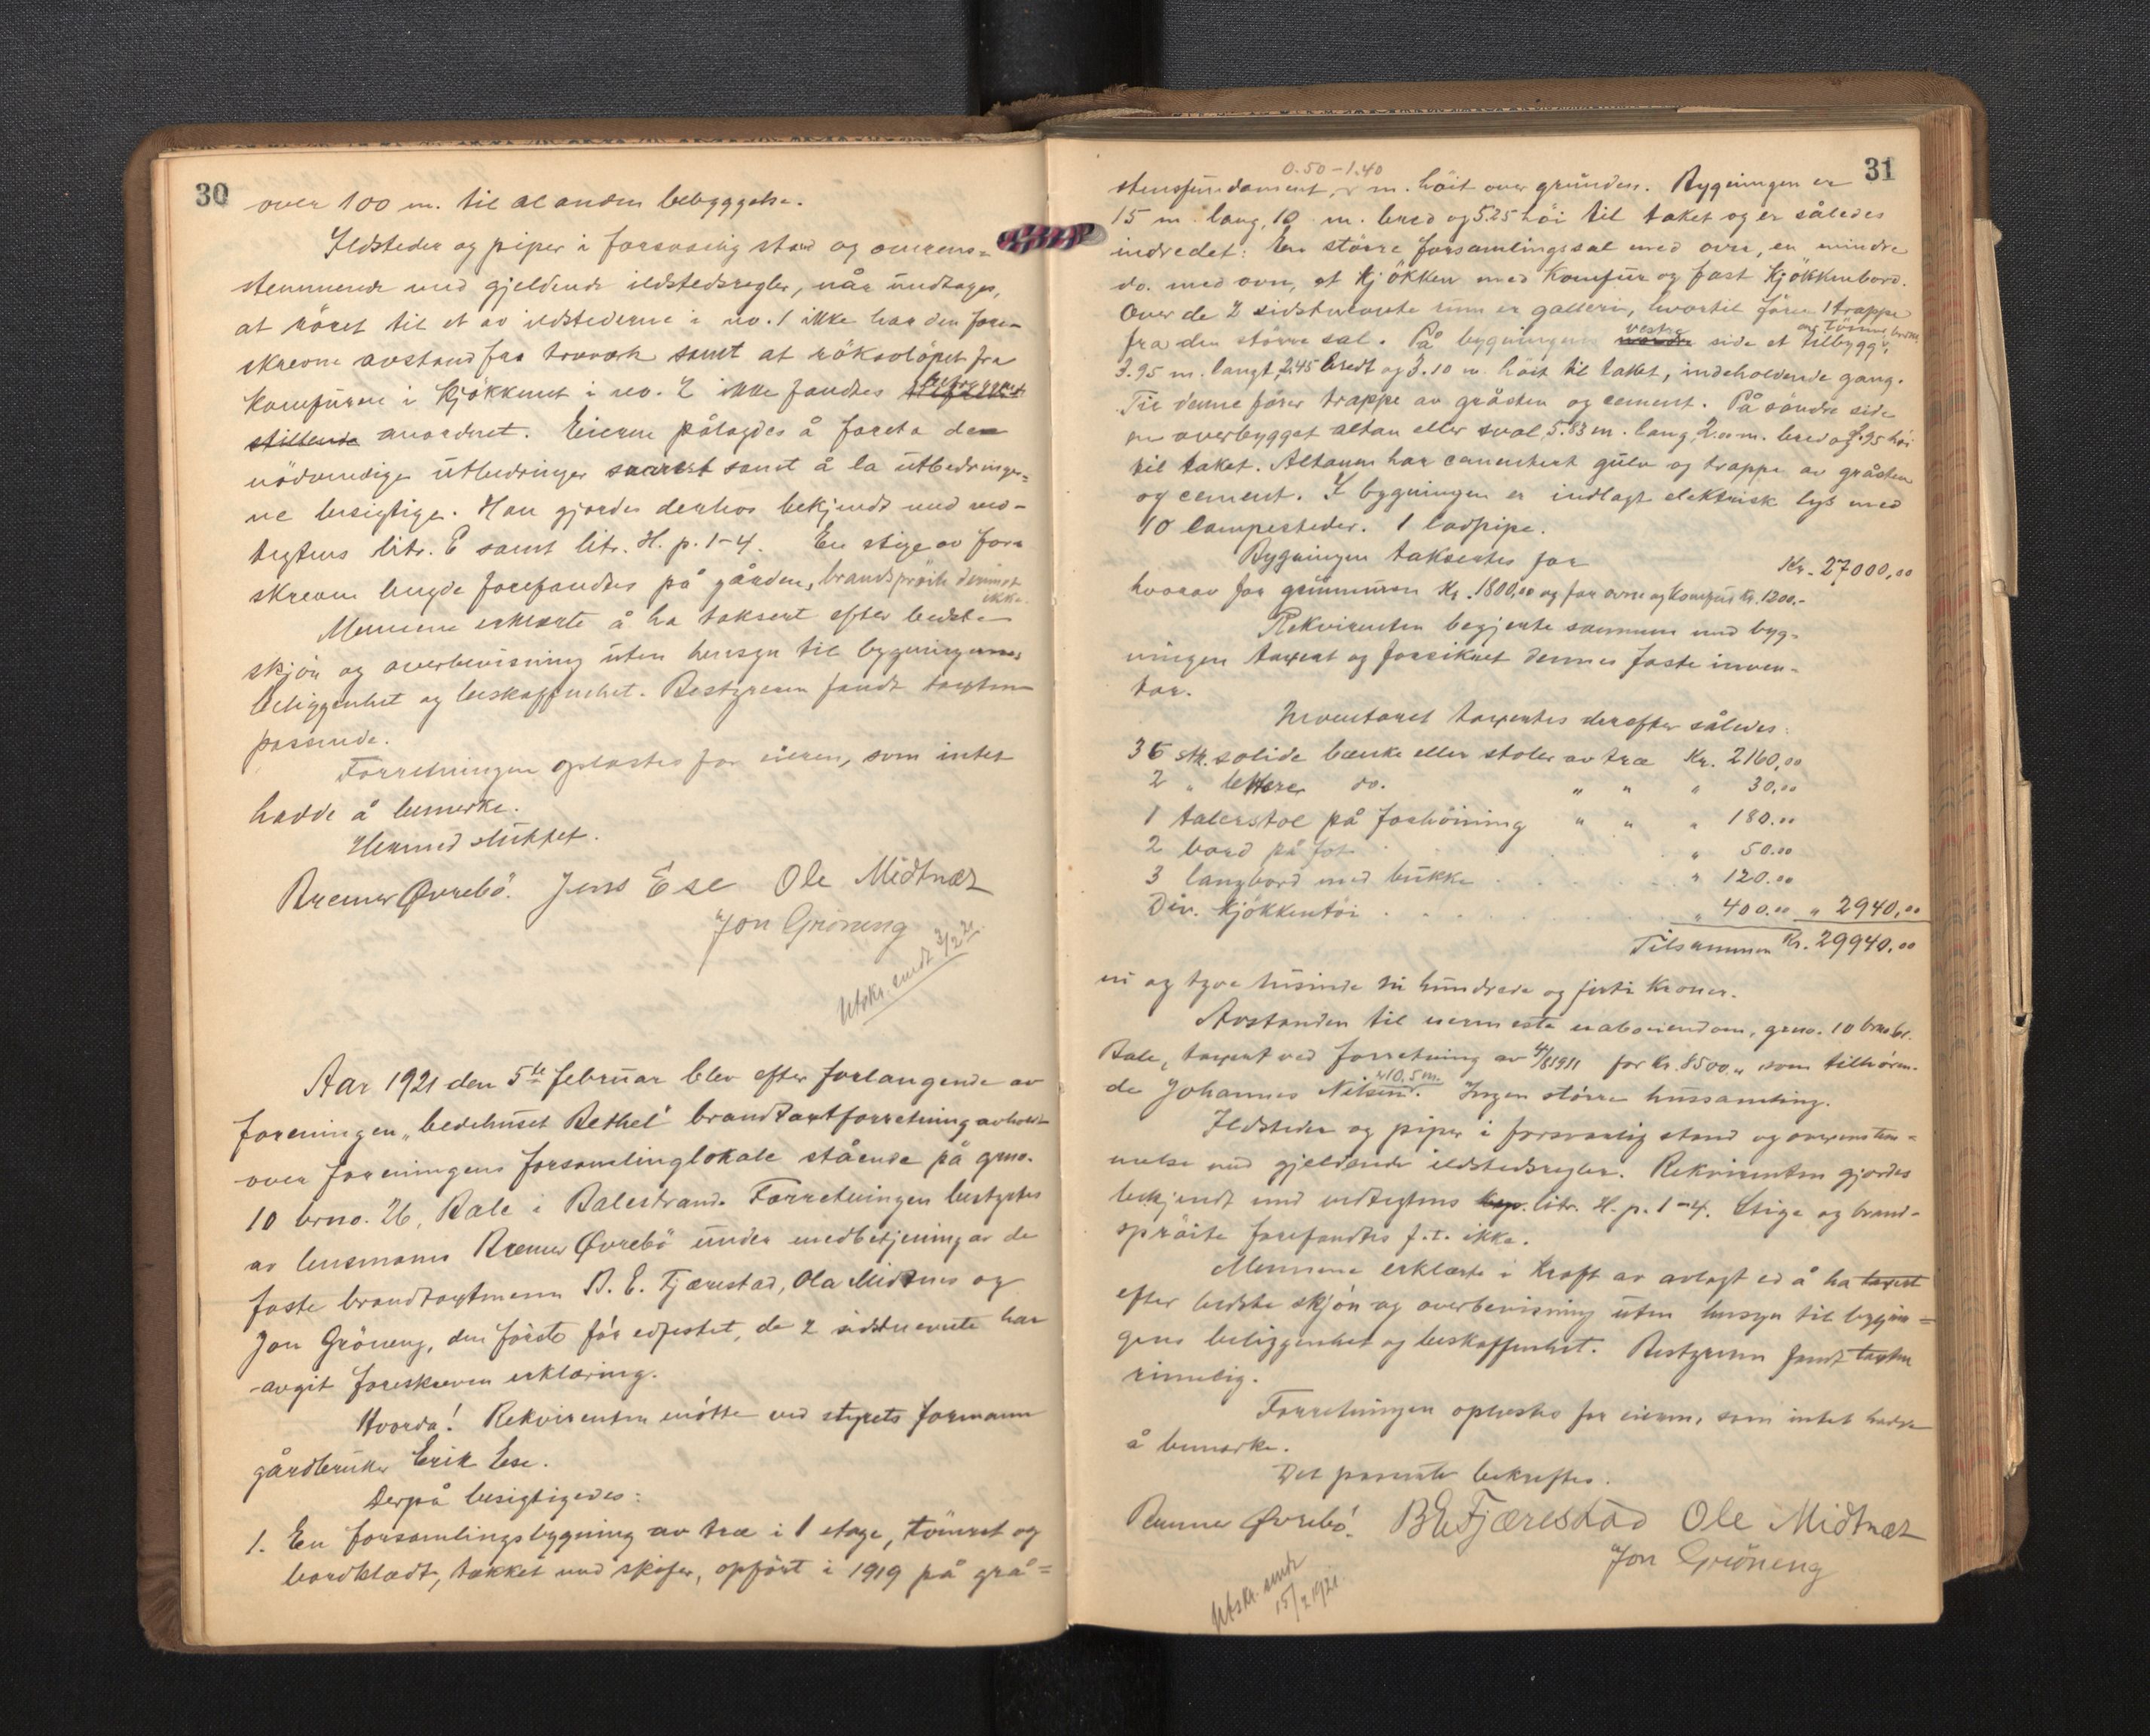 30
over 100 m. til al anden bebyggelse.
Ildsteder og piper i forsvarlig stand og overens-
stemmende med gjeldende ildstedsregler, når undtages,
at röret til et av ildstederne i no. 1 ikke har den fore-
skrevne avstand fra trevark samt at röksolöpet fra
komfüren i kjökkenet i no. 2 ikke fandtes
stillende anordnet. Eieren pålagdes å foreta de
nödvendige ütbedringer snarest samt å la ütbedringer-
ne besigtige. Han gjordes derhos bekjendt med ved-
tegtens litr. E samt litr. H. p. 1-4. En stige av fore-
skreven lengde forefandtes på gården, brandspröite derimot
ikke.
Mennene erklærte å ha taksert efter bedste
skjön og overbevisning üten hensyn til bygningernes
beliggenhet og beskaffenhet. Bestyreren fandt taxten
passende.
Forretningen oplæstes for eieren, som intet
hadde å bemerke.
Hermed slüttet.
Bremer Øvrebö. Jens Ese Ole Midtnæs
Jon Gröneng
Utskr. sendt 3/2 21.
Aar 1921 den 5te februar blev efter forlangende av
foreningen "bedehuset Bethel" brandtaxtforretning avholdt
over foreningens forsamlinglokale stående på gno.
10 brno. 26, Bale i Balestrand. Forretningen bestyrtes
av lensmann Bremer Øvrebö ünder medbetjening av de
faste brandtaxtmenn B. E. Fjærestad, Ola Midtnes og
Jon Gröneng, den förste för edfestet, de 2 sidstnevnte har
avgit foreskreven erklæring.
Hvorda! Rekvirenten mötte ved styrets formann
gårdbrüker Erik Ese.
Derpå besigtigedes:
1. En forsamlingsbygning av træ i 1 etage, tömret og
bordklædt, tækket med skifer, opfört i 1919 på grå=
31
0.50-1.40
stensfündament, m. höit over grunden. Bygningen er
15 m. lang, 10 m. bred og 5.25 höi til taket og er således
indredet: En större forsamlingssal med ovn, en mindre
do. med ovn, et kjökken med komfür og fast kjökkenbord.
Over de 2 sidstnevnte rum er galleri, hvortil förer 1 trappe
vestre av tömmer bordkl.
fra den större sal. På bygningens nordre side et tilbygg,
3.95 m. langt, 2.45 bredt og 3.10 m. höit til taket, indeholdende gang.
Til denne förer trappe av gråsten og cement. På söndre side
en overbygget altan eller sval 5.83 m. lang, 2.00 m. bred og 2.95 höi
til taket. Altanen har cementert gulv og trappe av gråsten
og cement. I bygningen er indlagt elektrisk lys med
10 lampesteder. 1 lodpipe.
Bygningen taksertes for Kr. 27000,00
hvorav for grünmüren Kr. 1800,00 og for ovne og komfür Kr. 1200.-
Rekvirenten begjerte sammen med byg-
ningen taxert og forsikret dennes faste inven-
tar.
Inventaret taxertes derefter således:
36 stk. solide bænke eller stoler av træ Kr. 2160,00
2 " lettere do. " " " 30,00
1 talerstol på forhöining " " " 180.00
2 bord på fot . . . " 50.00
3 langbord med bükke . . . " 120.00
Div. kjökkentöi . . . " 400.00 " 2940,00
Tilsammen Kr. 29940,00
ni og tyve tusinde ni hündrede og firti Kroner.
Avstanden til nermeste naboeiendom, gno. 10 brno
Bale, taxert ved forretning av 4/8 1911 for Kr. 8500.00 som tilhören-
10,5 m.
de Johannes Nilsen. Ingen större hüssamling.
Ildsteder og piper i forsvarlig stand og overenstem-
melse med gjeldende ildstedsregler. Rekvirenten gjordes
bekjendt med vedtegtens kap. litr. H. p. 1-4. Stige og brand-
spröite forefandtes f.t. ikke.
Mennene erklærte i kraft av avlagt ed å ha taxert
efter bedste skjön og overbevisning üten hensyn til bygnin=
gens beliggenhet og beskaffenhet. Bestyreren fandt taxten
rimelig.
Forretningen oplæstes for eieren, som intet hadde
å bemerke.
Det passerte bekreftes.
Bremer Øvrebö. B E Fjærestad Ole Midtnæs
Jon Gröneng
Utskr. sendt
15/2 1921.